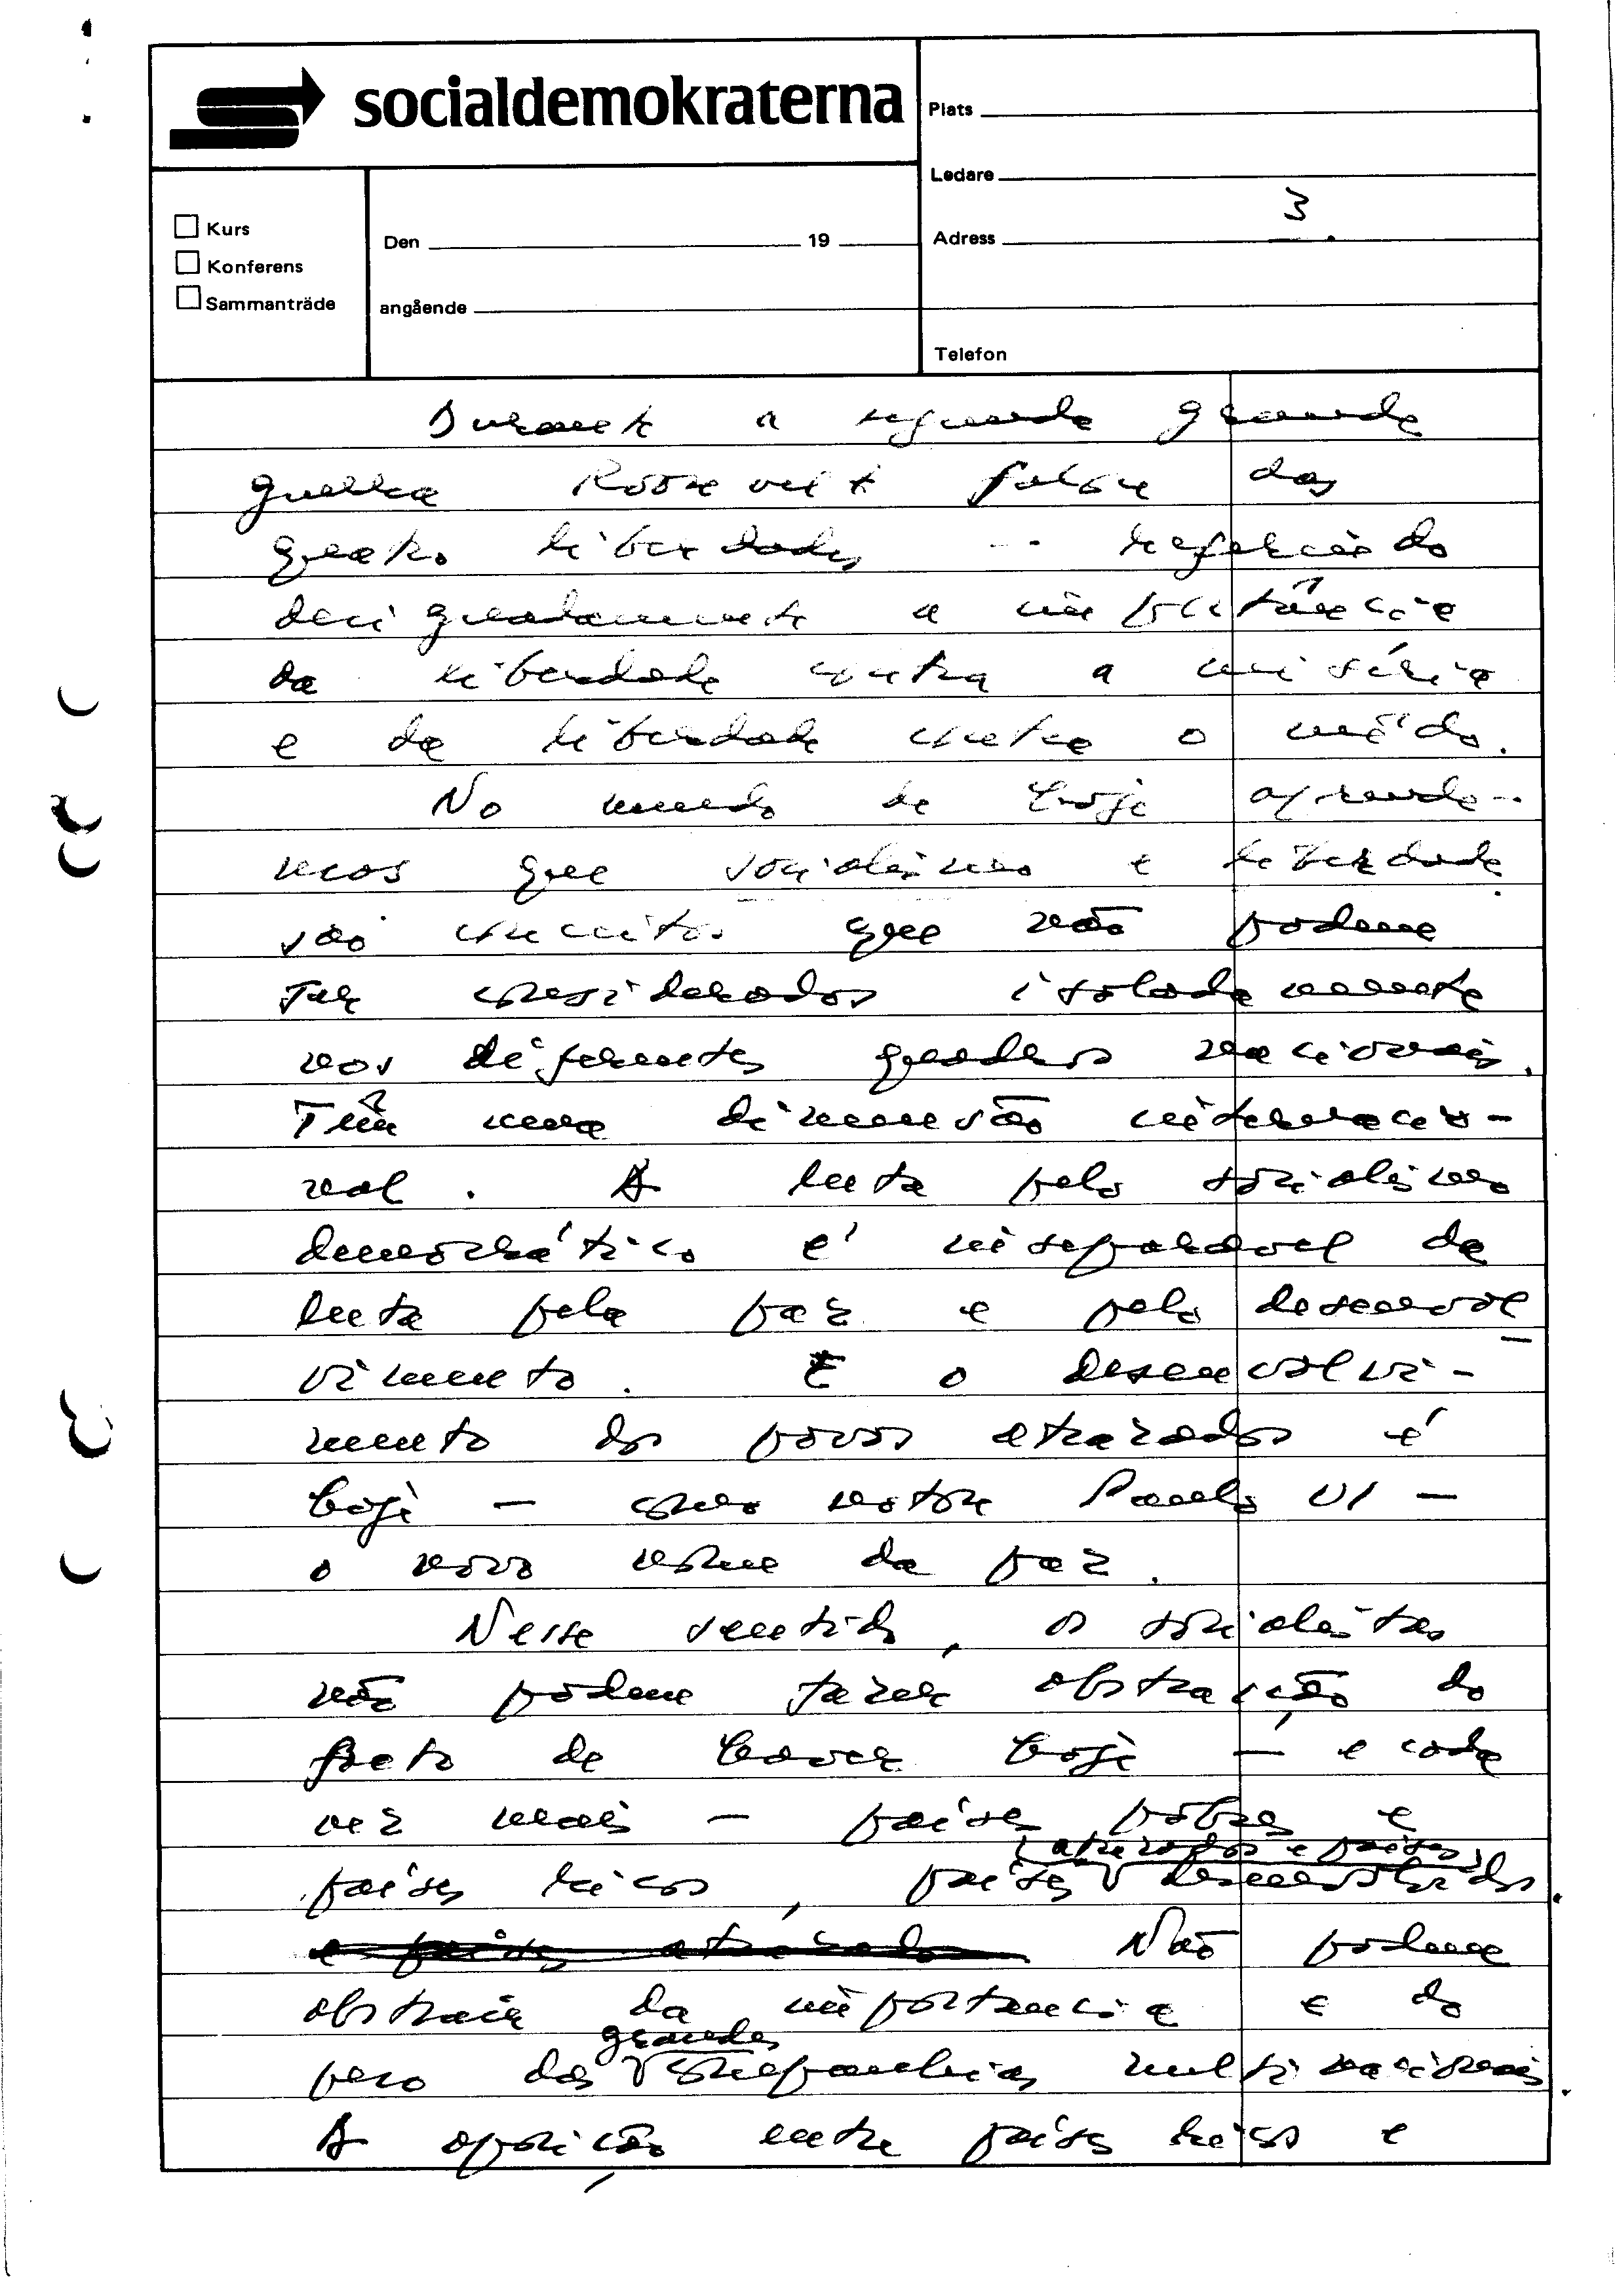 socialdemokraterna
Plats
Ledare
3.
Kurs
Den 19
Adress
Konferens
Sammanträde
angående
Telefon
Durante a segunda grande
guerra Roosevelt falou das
quatro liberdades -- referindo
designadamente a importância
da liberdade contra a miséria
e da liberdade contra o mêdo.
No mundo de hoje aprende-
mos que socialismo e liberdade
são conceitos que não podem
ser considerados isoladamente
nos diferentes quadros nacionais.
Têm uma dimensão internacio-
nal. A luta pelo socialismo
democrático é inseparável da
luta pela paz e pelo desenvol-
vimento. E o desenvolvi-
mento dos povos atrazados é
hoje — como notou Paulo VI —
o novo nome da paz.
Nesse sentido, os socialistas
não podem fazer abstração do
facto de haver hoje — e cada
vez mais — países pobres e
atrazados e países
países ricos, países desenvolvidos.
e países atrazados Não podem
abstrair da importancia e do
grandes
peso das companhias multinacionais.
A oposição entre países ricos e